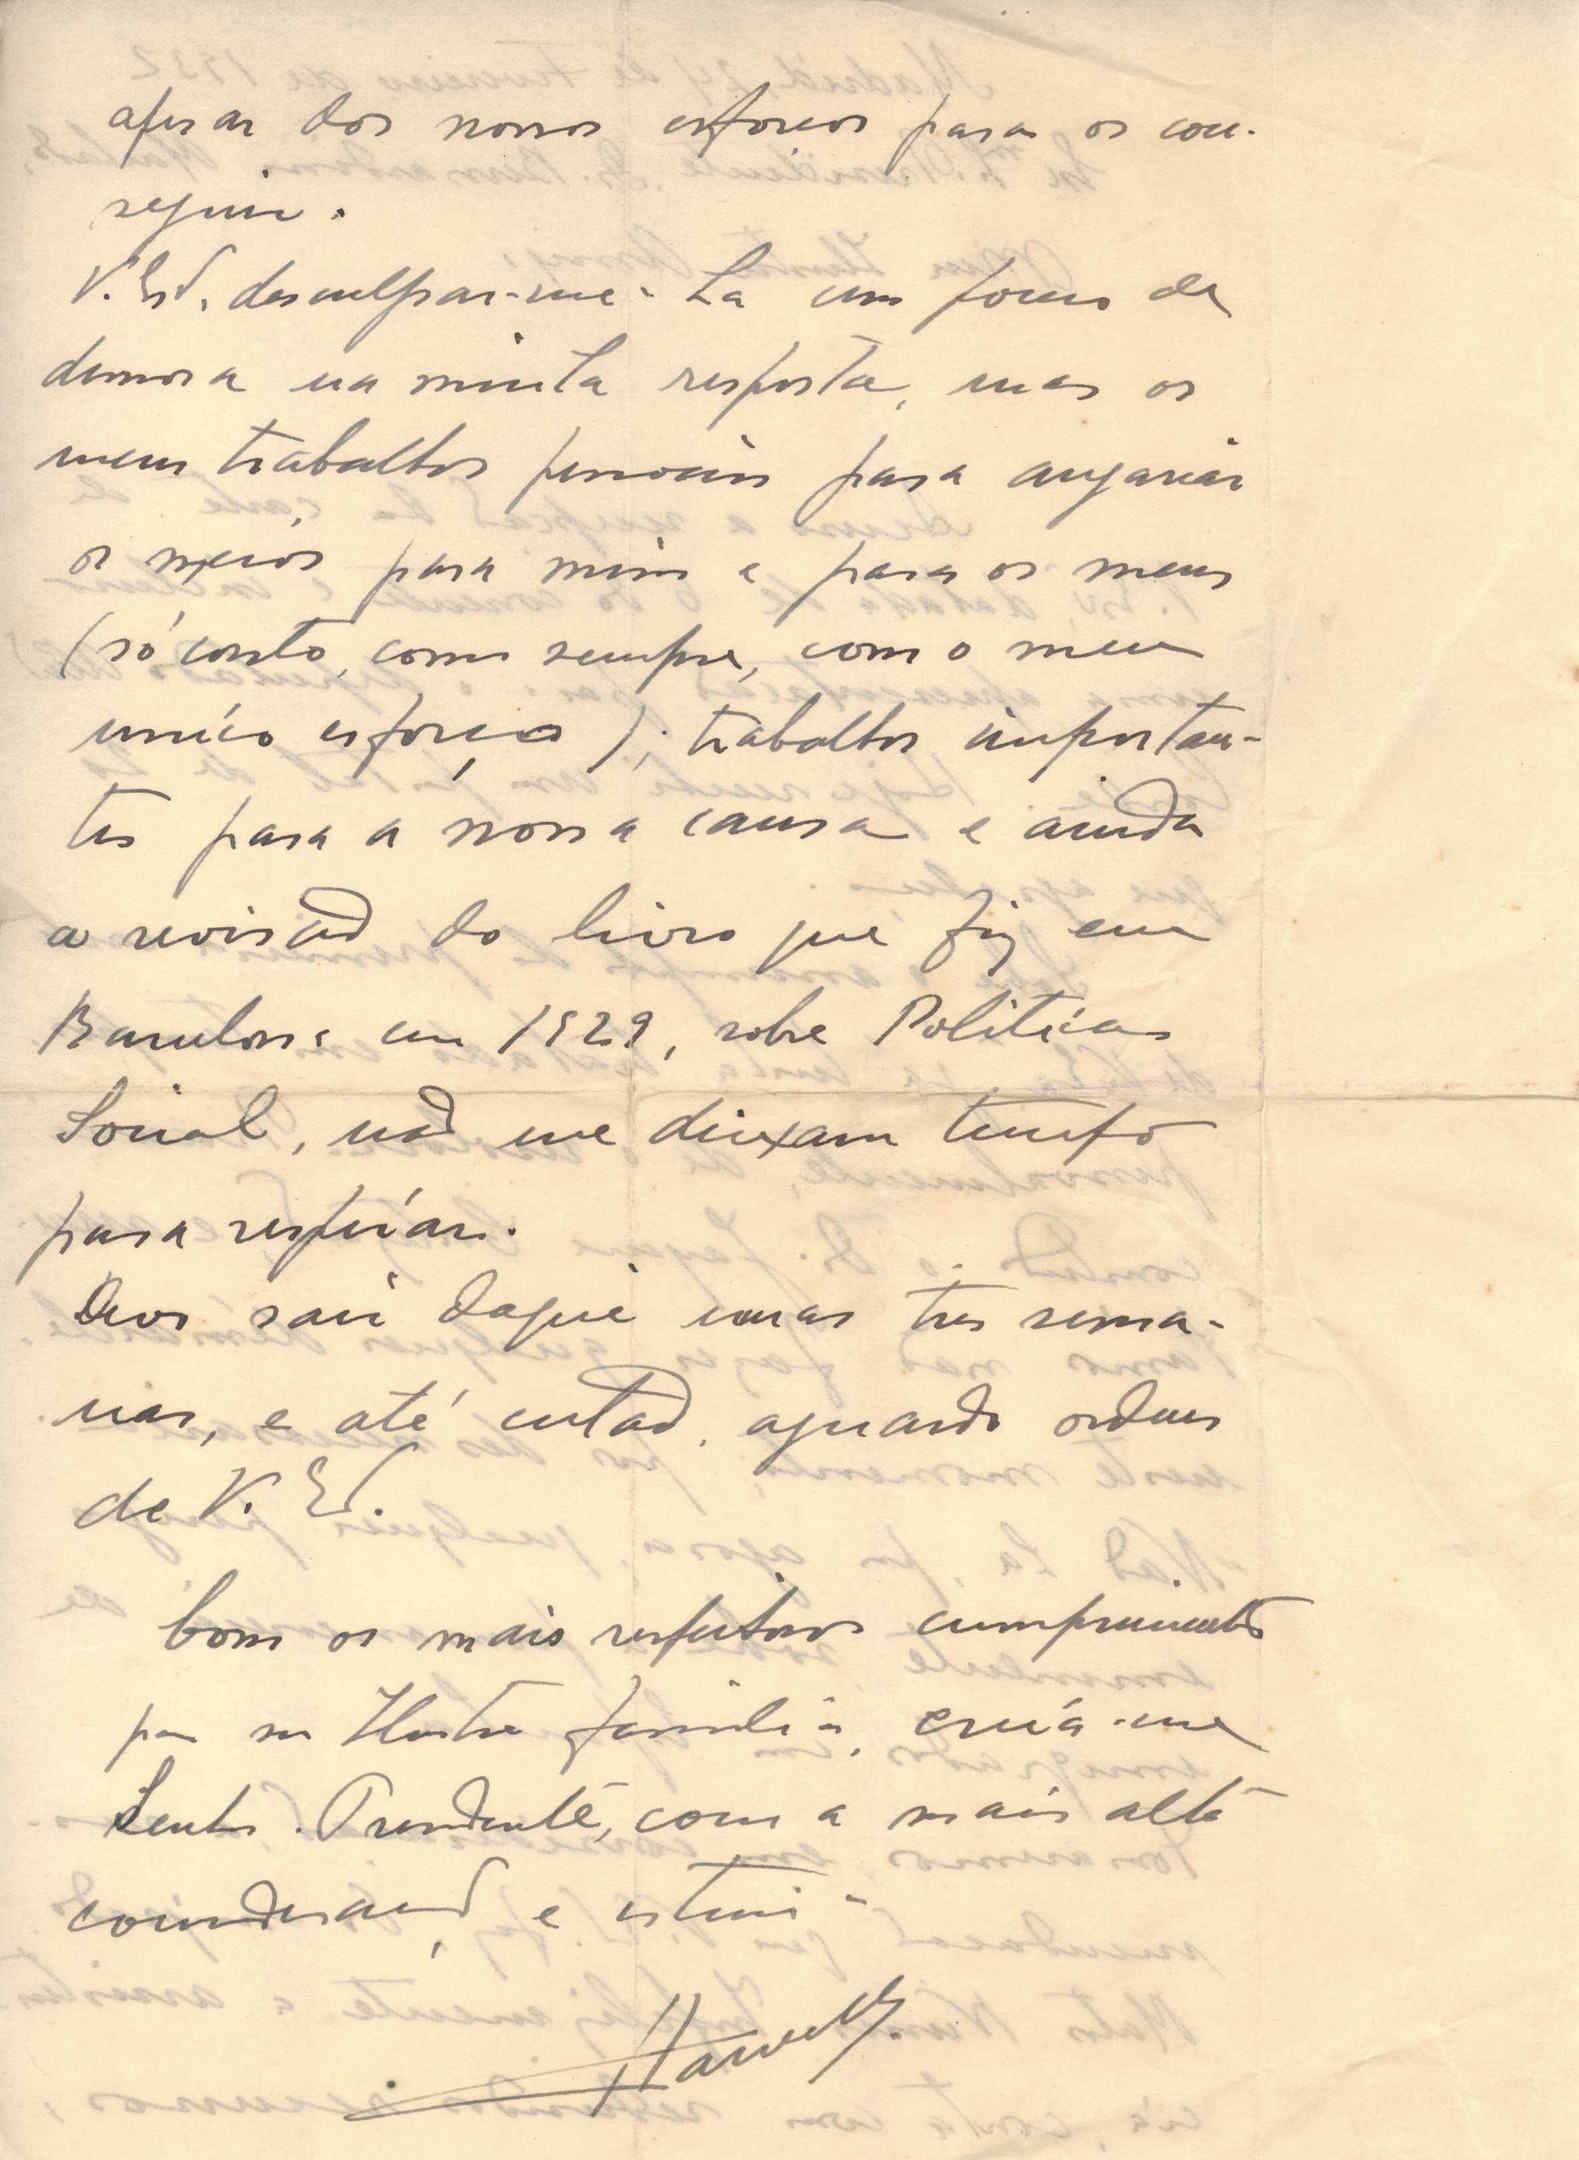 apesar dos nossos esforços para os con-
seguir.
V. Ex.ª desculpar-me-ha um pouco de
demora na minha resposta, mas os
meus trabalhos pessoais para angariar
os meios para mim e para os meus
(só conto, como sempre, com o meu
unico esforço); trabalhos importan-
tes para a nossa causa e ainda
a revisão do livro que fiz em
Barcelona em 1929, sobre Politica
Social, não me deixam tempo
para respirar.
Devo sair daqui umas tres sema-
nas, e até então, aguardo ordens
de V. Ex.ª.
Com os mais respeitosos cumprimentos
para sua Ilustre familia, creia-me
Senhor Presidente, com a mais alta
consideração e estima